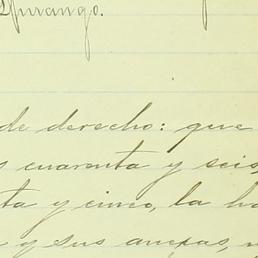 Durango.
de derecho: que
s cuarenta y seis,
ta y cinco, la ha
y sus anexas,